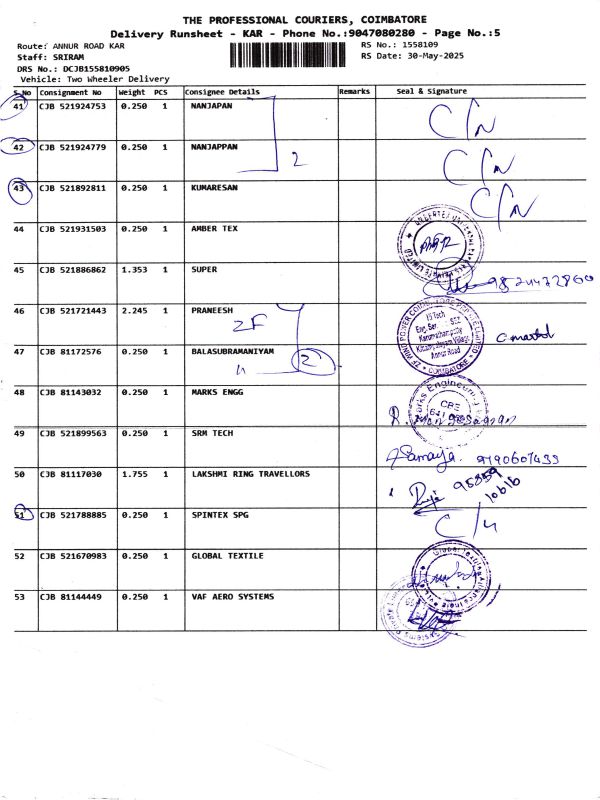 THE PROFESSIONAL COURIERS, COIMBATORE
Delivery Runsheet - KAR - Phone No.:9047080280 - Page No.:5
Route: ANNUR ROAD KAR
RS No.: 1558109
Staff: SRIRAM
RS Date: 30-May-2025
DRS No.: DCJB155810905
Vehicle: Two Wheeler Delivery
S No Consignment No Weight PCS Consignee Details Remarks Seal & Signature
41 CJB 521924753 0.250 1 NANJAPAN C/N
42 CJB 521924779 0.250 1 NANJAPPAN 2 C/N
43 CJB 521892811 0.250 1 KUMARESAN C/N
44 CJB 521931503 0.250 1 AMBER TEX
45 CJB 521886862 1.353 1 SUPER
46 CJB 521721443 2.245 1 PRANEESH
ZF
ZF WIND POWER COIMBATORE PRIVATE LIMITED
Karumathampatty
Annur Road
COIMBATORE
47 CJB 81172576 0.250 1 BALASUBRAMANIYAM 2
48 CJB 81143032 0.250 1 MARKS ENGG
Marks Engineering
CBE
49 CJB 521899563 0.250 1 SRM TECH
Ramaya. 9190607433
50 CJB 81117030 1.755 1 LAKSHMI RING TRAVELLORS
51 CJB 521788885 0.250 1 SPINTEX SPG
52 CJB 521670983 0.250 1 GLOBAL TEXTILE
Global Textile Alliance India
53 CJB 81144449 0.250 1 VAF AERO SYSTEMS